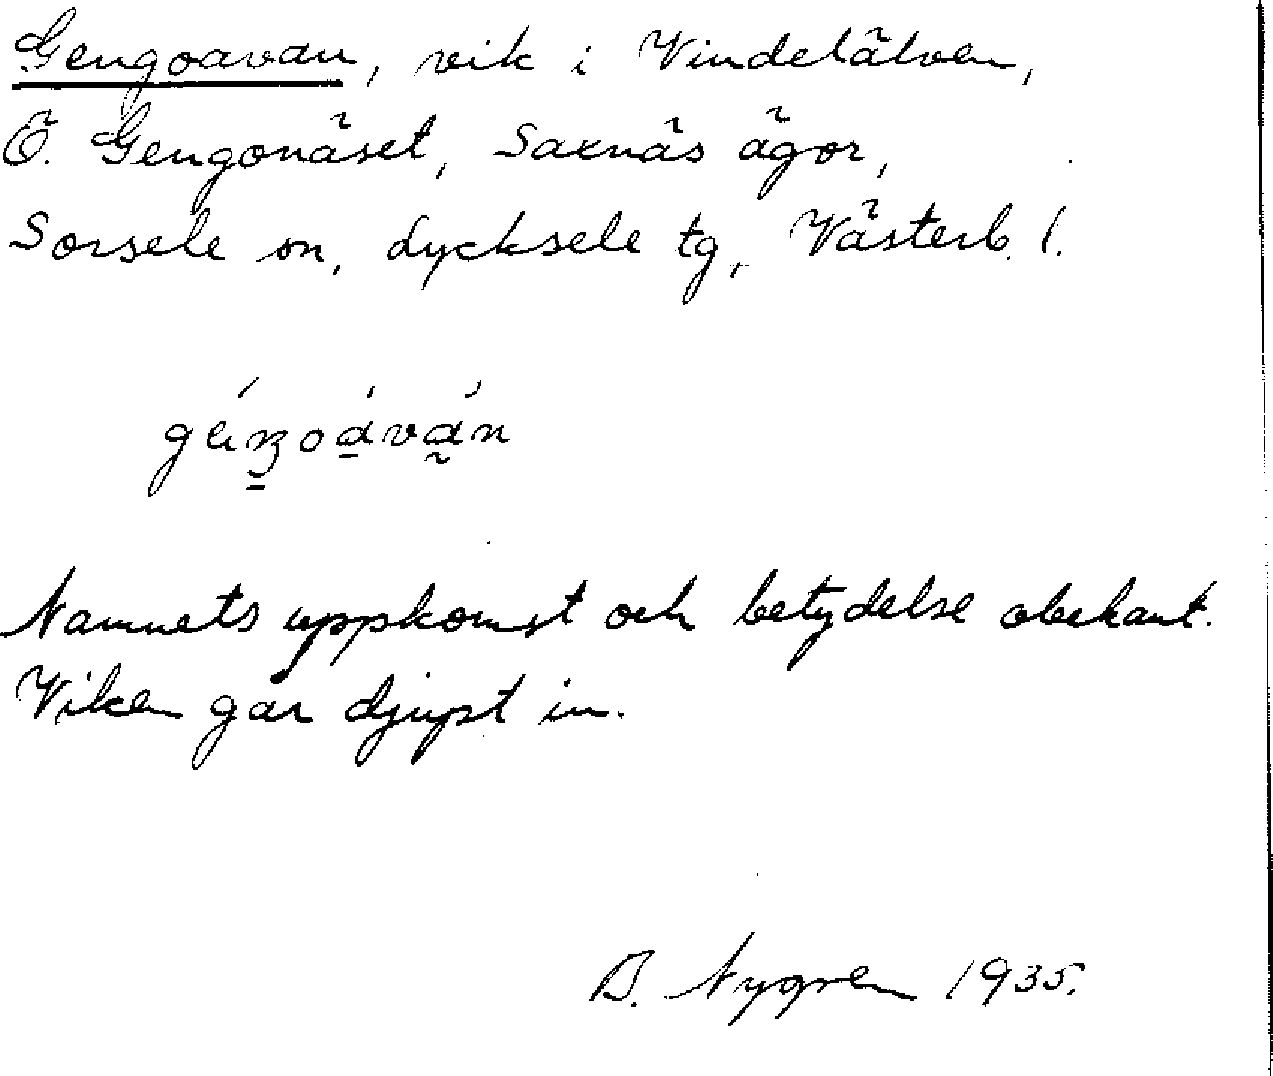 Gengoavan, vik i Vindelälven,
Ö. Gengonäset, Saxnäs ägor,
Sorsele sn, Lycksele tg, Västerb. l.
Namnets uppkomst och betydelse obekant.
Viken går djupt in.
B. Nygren 1935.